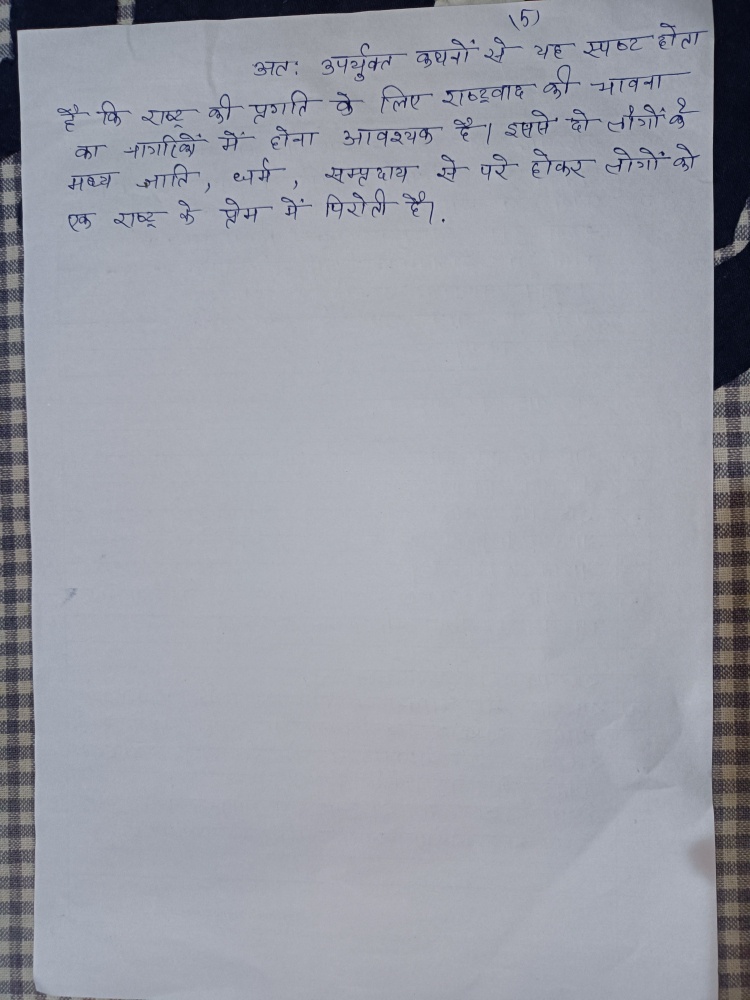 (5)
अतः उपर्युक्त कथनों से यह स्पष्ट होता
है कि राष्ट्र की प्रगति के लिए राष्ट्रवाद की भावना
का नागरिकों में होना आवश्यक है। इससे दो लोगों के
मध्य जाति, धर्म, सम्प्रदाय से परे होकर लोगों को
एक राष्ट्र के प्रेम में पिरोती है।.